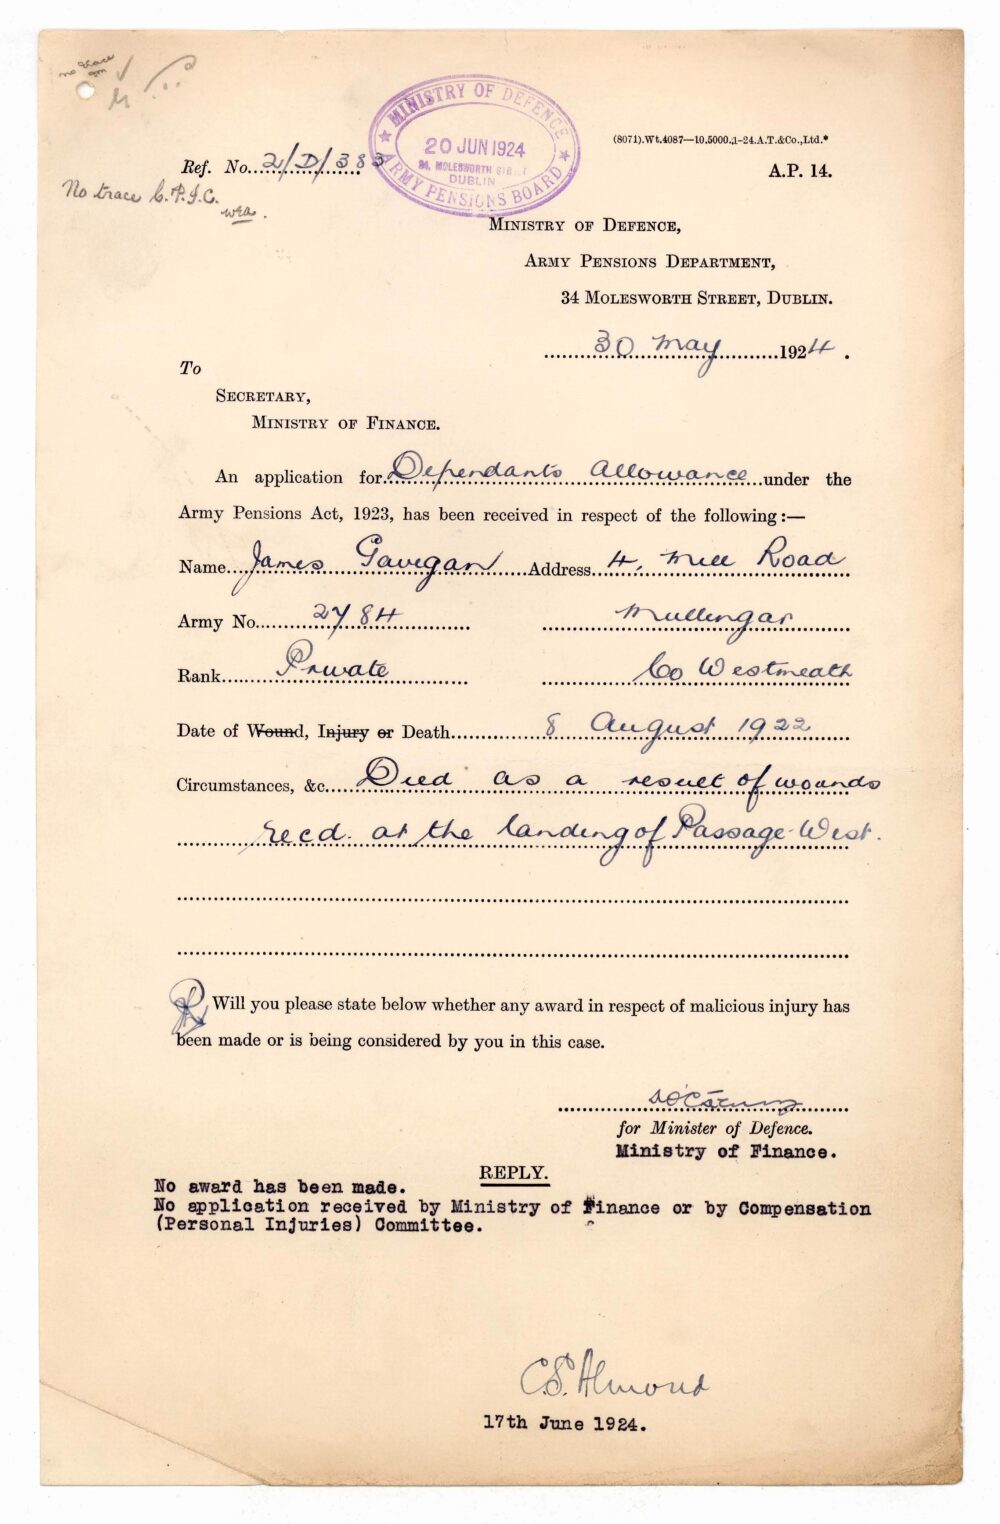 no trace
MINISTRY OF DEFENCE
20 JUN 1924
34, MOLESWORTH STREET
DUBLIN
ARMY PENSIONS BOARD
(8071).Wt.4087—10.5000.,1-24.A.T.&Co.,Ltd.*
Ref. No. 2/D/383
A.P. 14.
No trace C.P.I.C.
Ministry of Defence,
Army Pensions Department,
34 Molesworth Street, Dublin.
30 May 1924.
To
Secretary,
Ministry of Finance.
An application for Dependants Allowance under the
Army Pensions Act, 1923, has been received in respect of the following:—
Name James Gavigan Address 4, Mill Road
Army No. 2784 Mullingar
Rank Private Co Westmeath
Date of Wound, Injury or Death 8 August 1922
Circumstances, &c. Died as a result of wounds
recd. at the landing of Passage-West.
Will you please state below whether any award in respect of malicious injury has
been made or is being considered by you in this case.
for Minister of Defence.
Ministry of Finance.
REPLY.
No award has been made.
No application received by Ministry of Finance or by Compensation
(Personal Injuries) Committee.
C.S. Almond
17th June 1924.